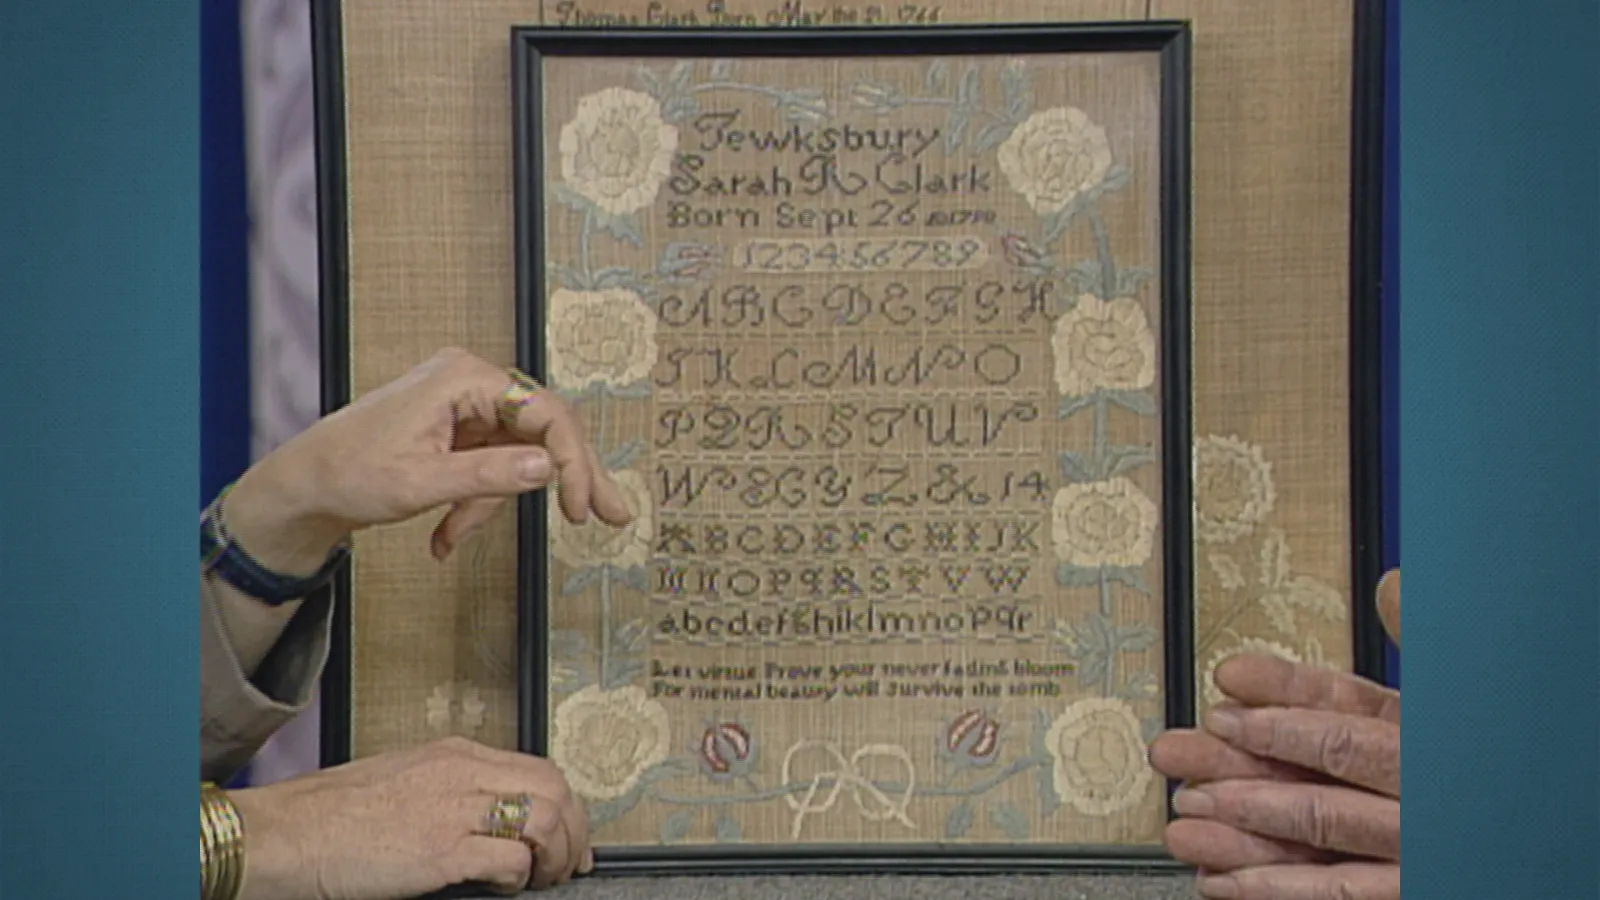 Thomas Clark Born May the 21 1766
Tewksbury
Sarah R Clark
Born Sept 26
123456789
ABCDEFGH
IKLMNO
PQRSTUV
WXYZ& 14
ABCDEFGHIJK
MNOPQRSTVW
abcdefghiklmnopqr
Let virtue Prove your never fading bloom
For mental beauty will Survive the tomb